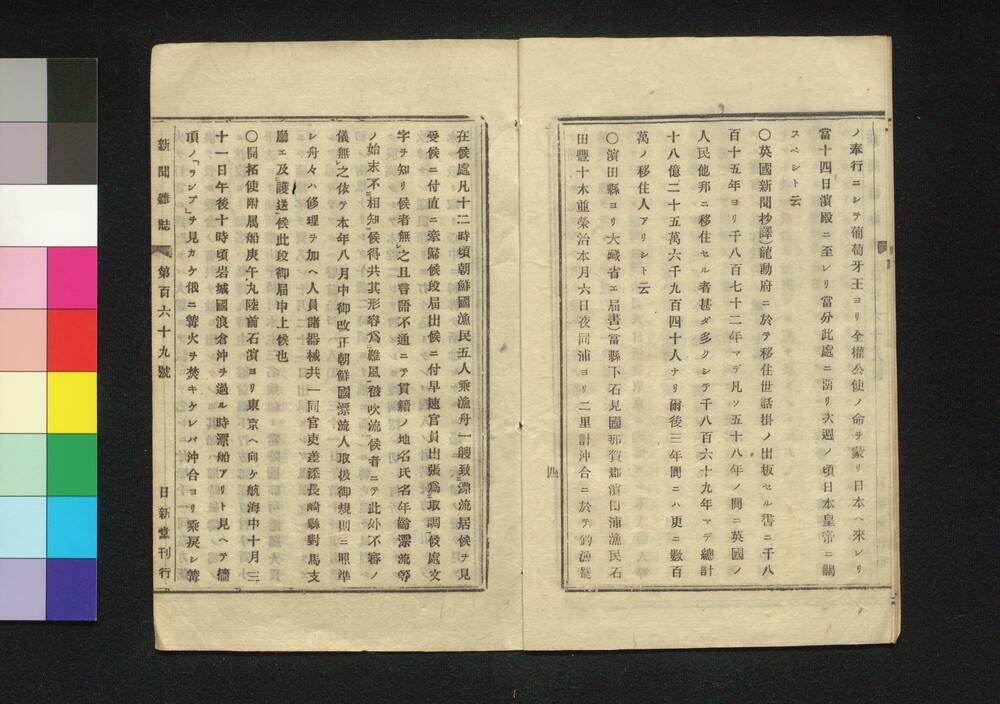 ノ奉行ニシテ葡萄牙王ヨリ全權公使ノ命ヲ蒙リ日本ヘ來レリ
當十四日濱殿ニ至レリ當分此處ニ留リ次週ノ頃日本皇帝ニ謁
スベシト云
〇英國新聞抄譯)龍動府ニ於テ移住世話掛ノ出板セル書ニ千八
百十五年ヨリ千八百七十二年マデ凡ソ五十八年ノ間ニ英國ノ
人民他邦ニ移住セル者甚ダ多クシテ千八百六十九年マデ總計
十八億二十五萬六千九百四十人ナリ爾後三年間ニハ更ニ數百
萬ノ移住人アリシト云
〇濱田縣ヨリ大藏省エ屆書)當縣下石見國那賀郡濱田浦漁民石
田豐十木並榮治本月六日夜同浦ヨリ二里計沖合ニ於テ釣漁罷
四
在候處凡十二時頃朝鮮國漁民五人乘漁舟一艘致漂流居候ヲ見
受候ニ付直ニ牽歸候段屆出候ニ付早速官員出張爲取調候處文
字ヲ知リ候者無之且言語不通ニテ貫籍ノ地名氏名年齡漂流等
ノ始末不相知候得共其形容爲難風被吹流候者ニテ此外不審ノ
儀無之依テ本年八月中御改正朝鮮國漂流人取扱御規則ニ照準
シ舟々ハ修理ヲ加ヘ人員諸器械共一同官吏差添長崎縣對馬支
廳エ及護送候此段御屆申上候也
〇開拓使附屬船庚午九陸前石濱ヨリ東京ヘ向ケ航海中十月三
十一日午後十時頃岩城國浪倉沖ヲ過ル時漂船アリト見ヘテ檣
項ノ「ランプ」ヲ見カケ俄ニ篝火ヲ焚キケレバ沖合ヨリ乘戾シ篝
新聞雜誌 第百六十九號 日新堂刊行